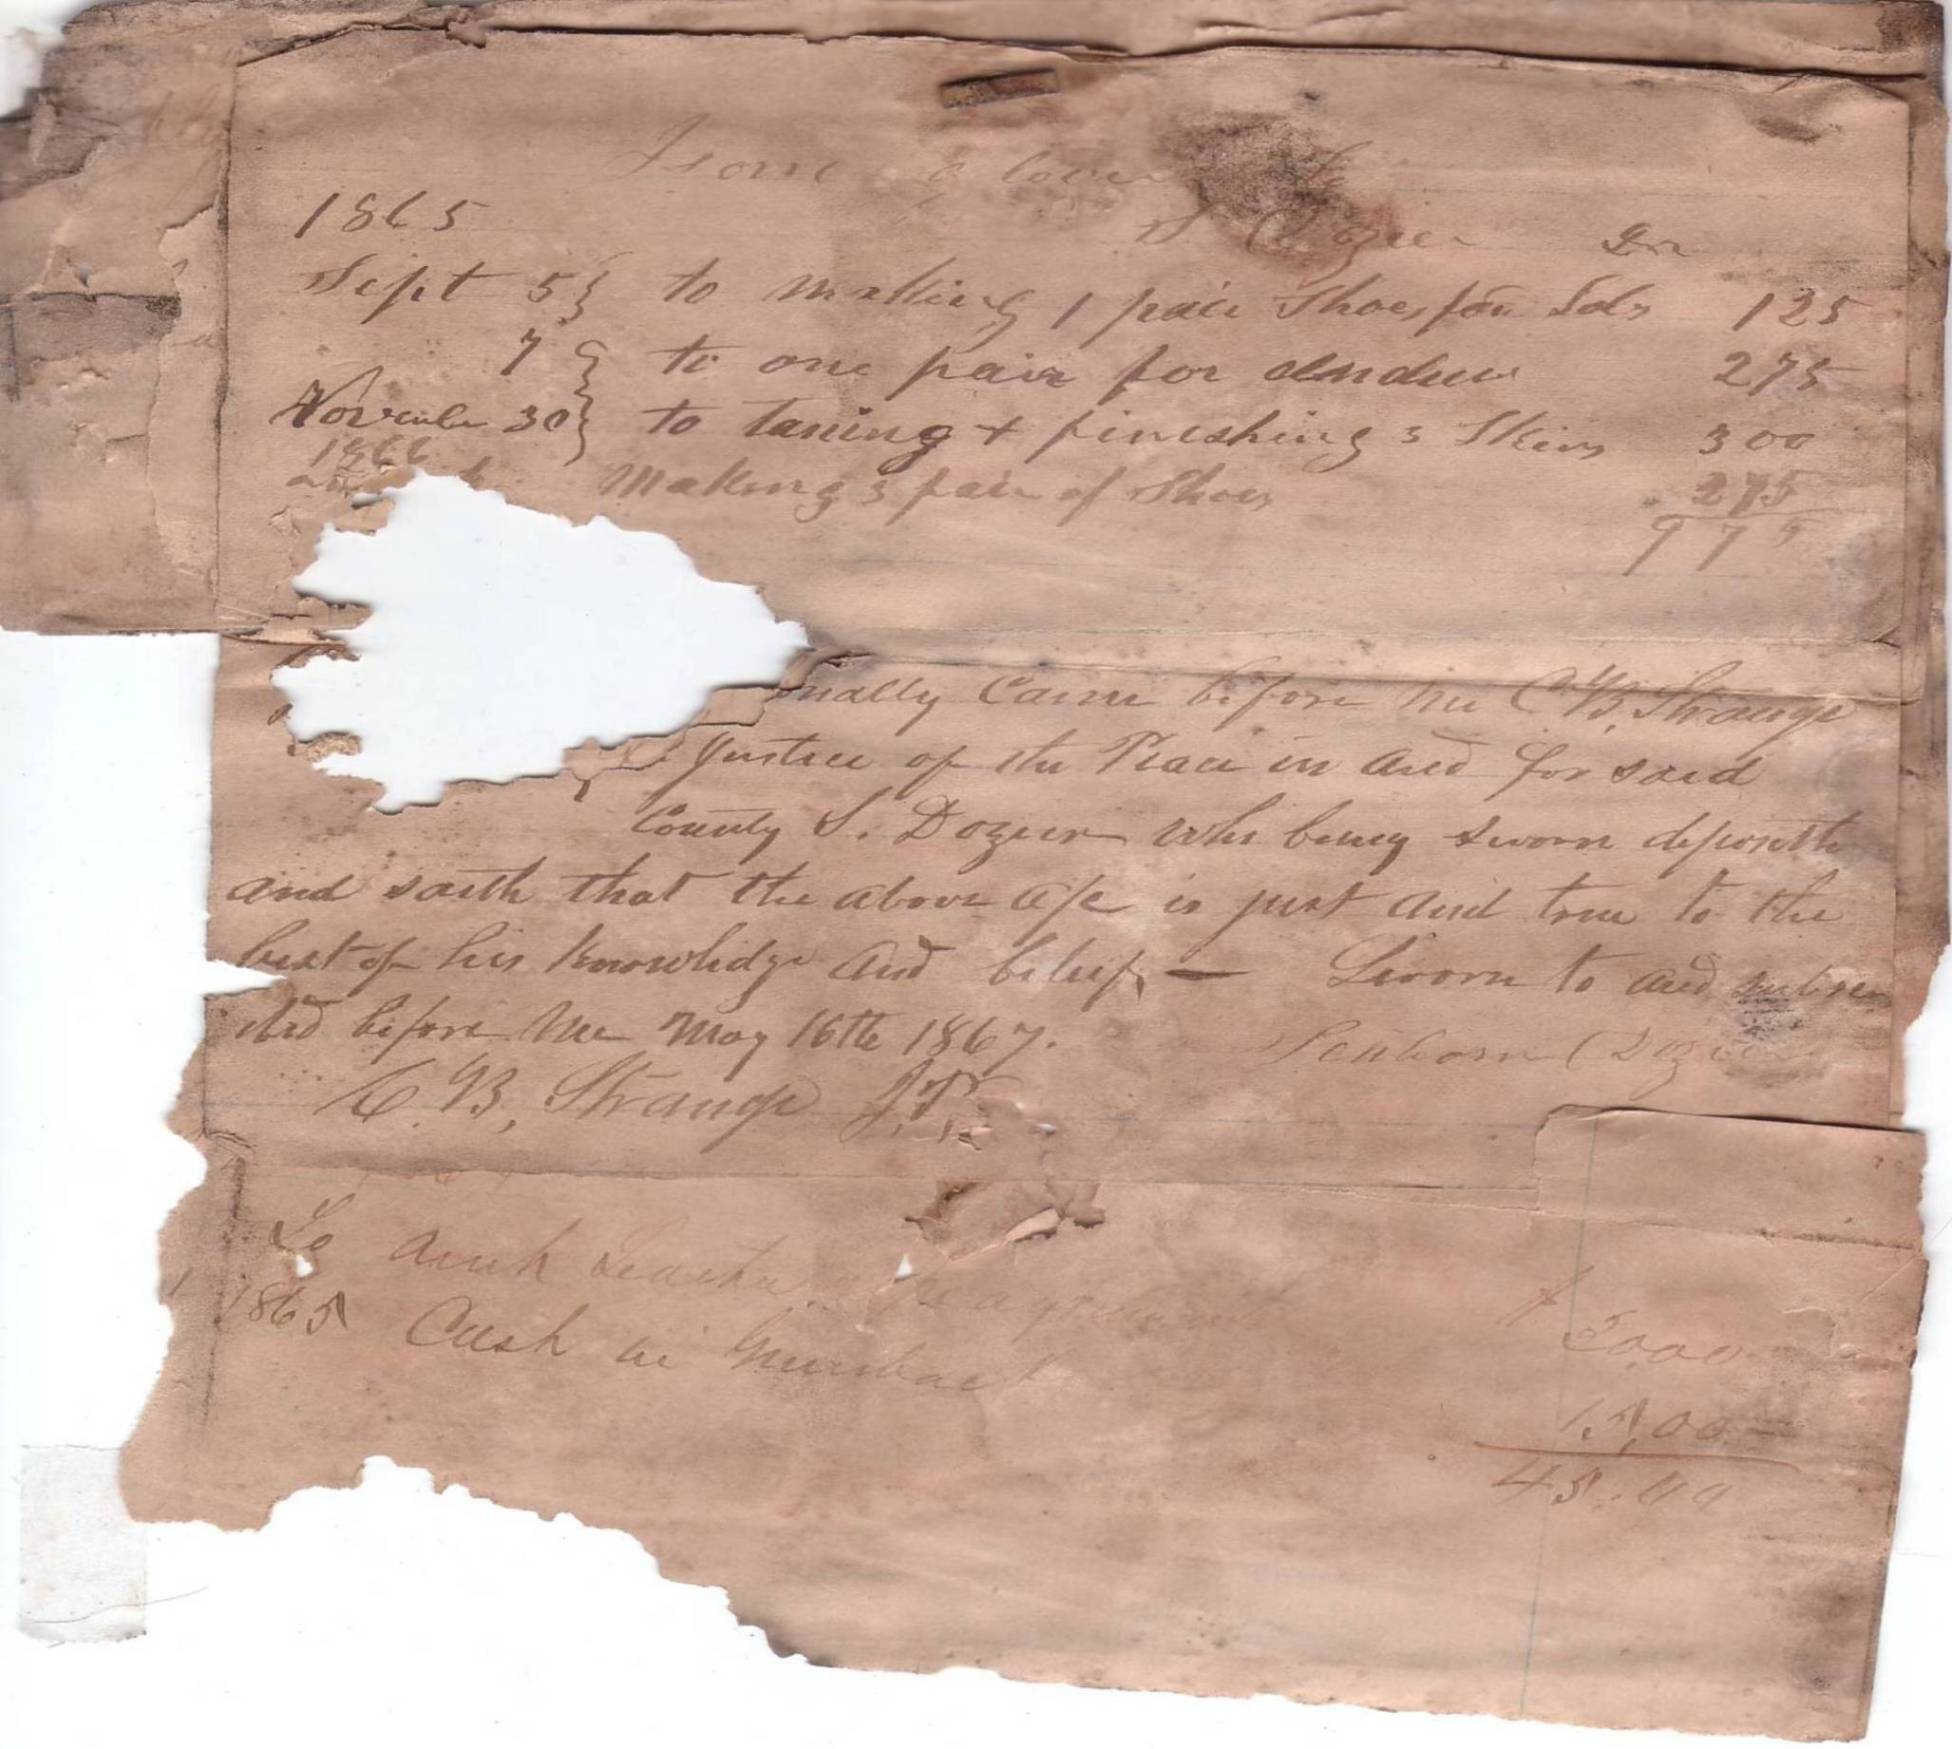 Isom Glover To
1865 S Dozier Dr
Sept 5 to making 1 pair Shoes for Sol 125
7 to one pair for andrew 275
November 30 to taning + fineshing 3 Skins 300
1866
Making 3 pair of Shoes 275
975
onally Came before me C. B. Strange
Justice of the Peace in and for said
County S. Dozier who being sworn deposeth
and saith that the above a/c is just and true to the
best of his knowledge and belief, — Sworn to and subscr
ibed before me May 16th 1867.
Dozier
C. B. Strange J.P.
To
1865 Cash in
15,00
45.00